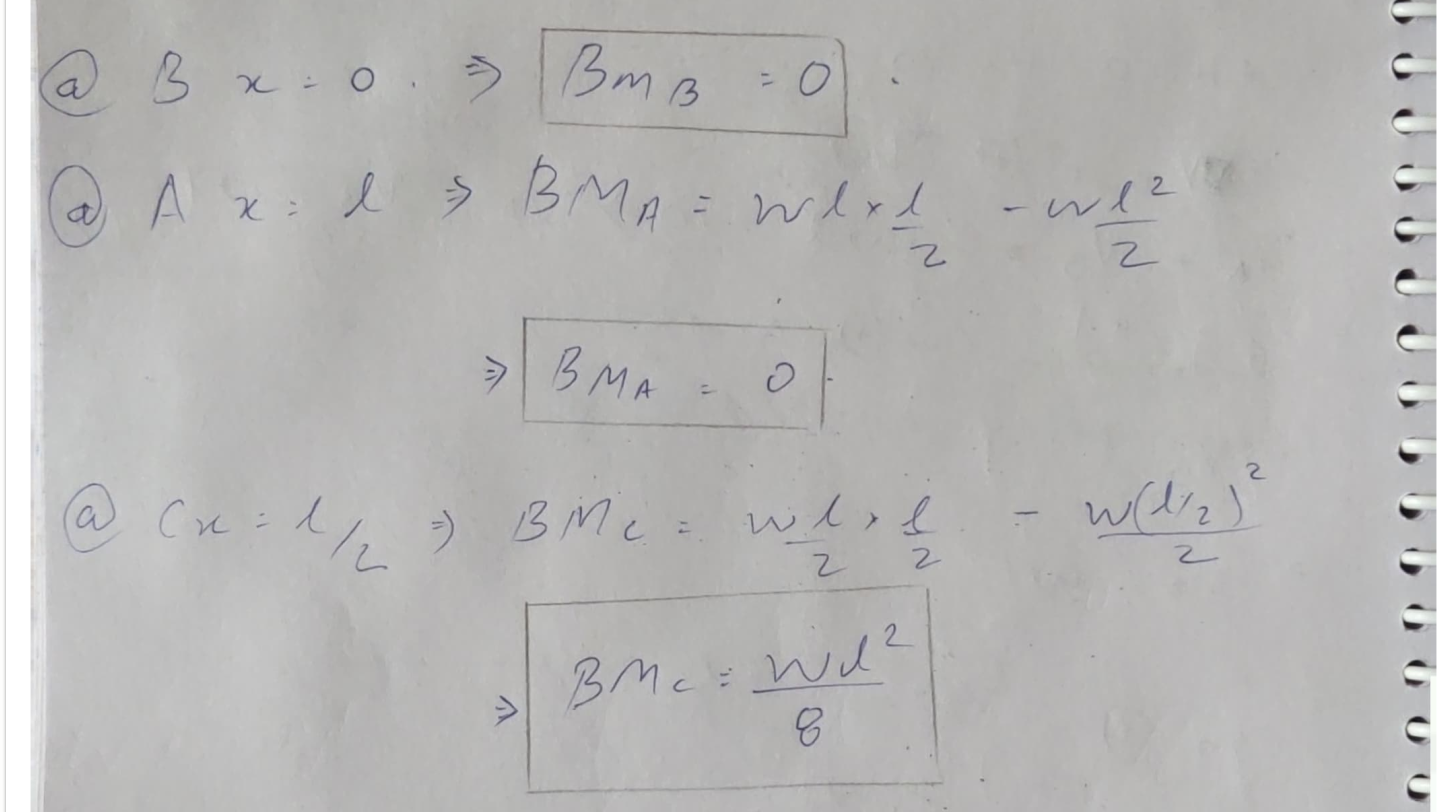 @ B x = 0 . ⇒ BM_B = 0 .
@ A x = l ⇒ BM_A = wl × l/2 - wl²/2
⇒ BM_A = 0
@ C x = l/2 ⇒ BM_C = wl/2 × l/2 - w(l/2)²/2
⇒ BM_C = wl²/8